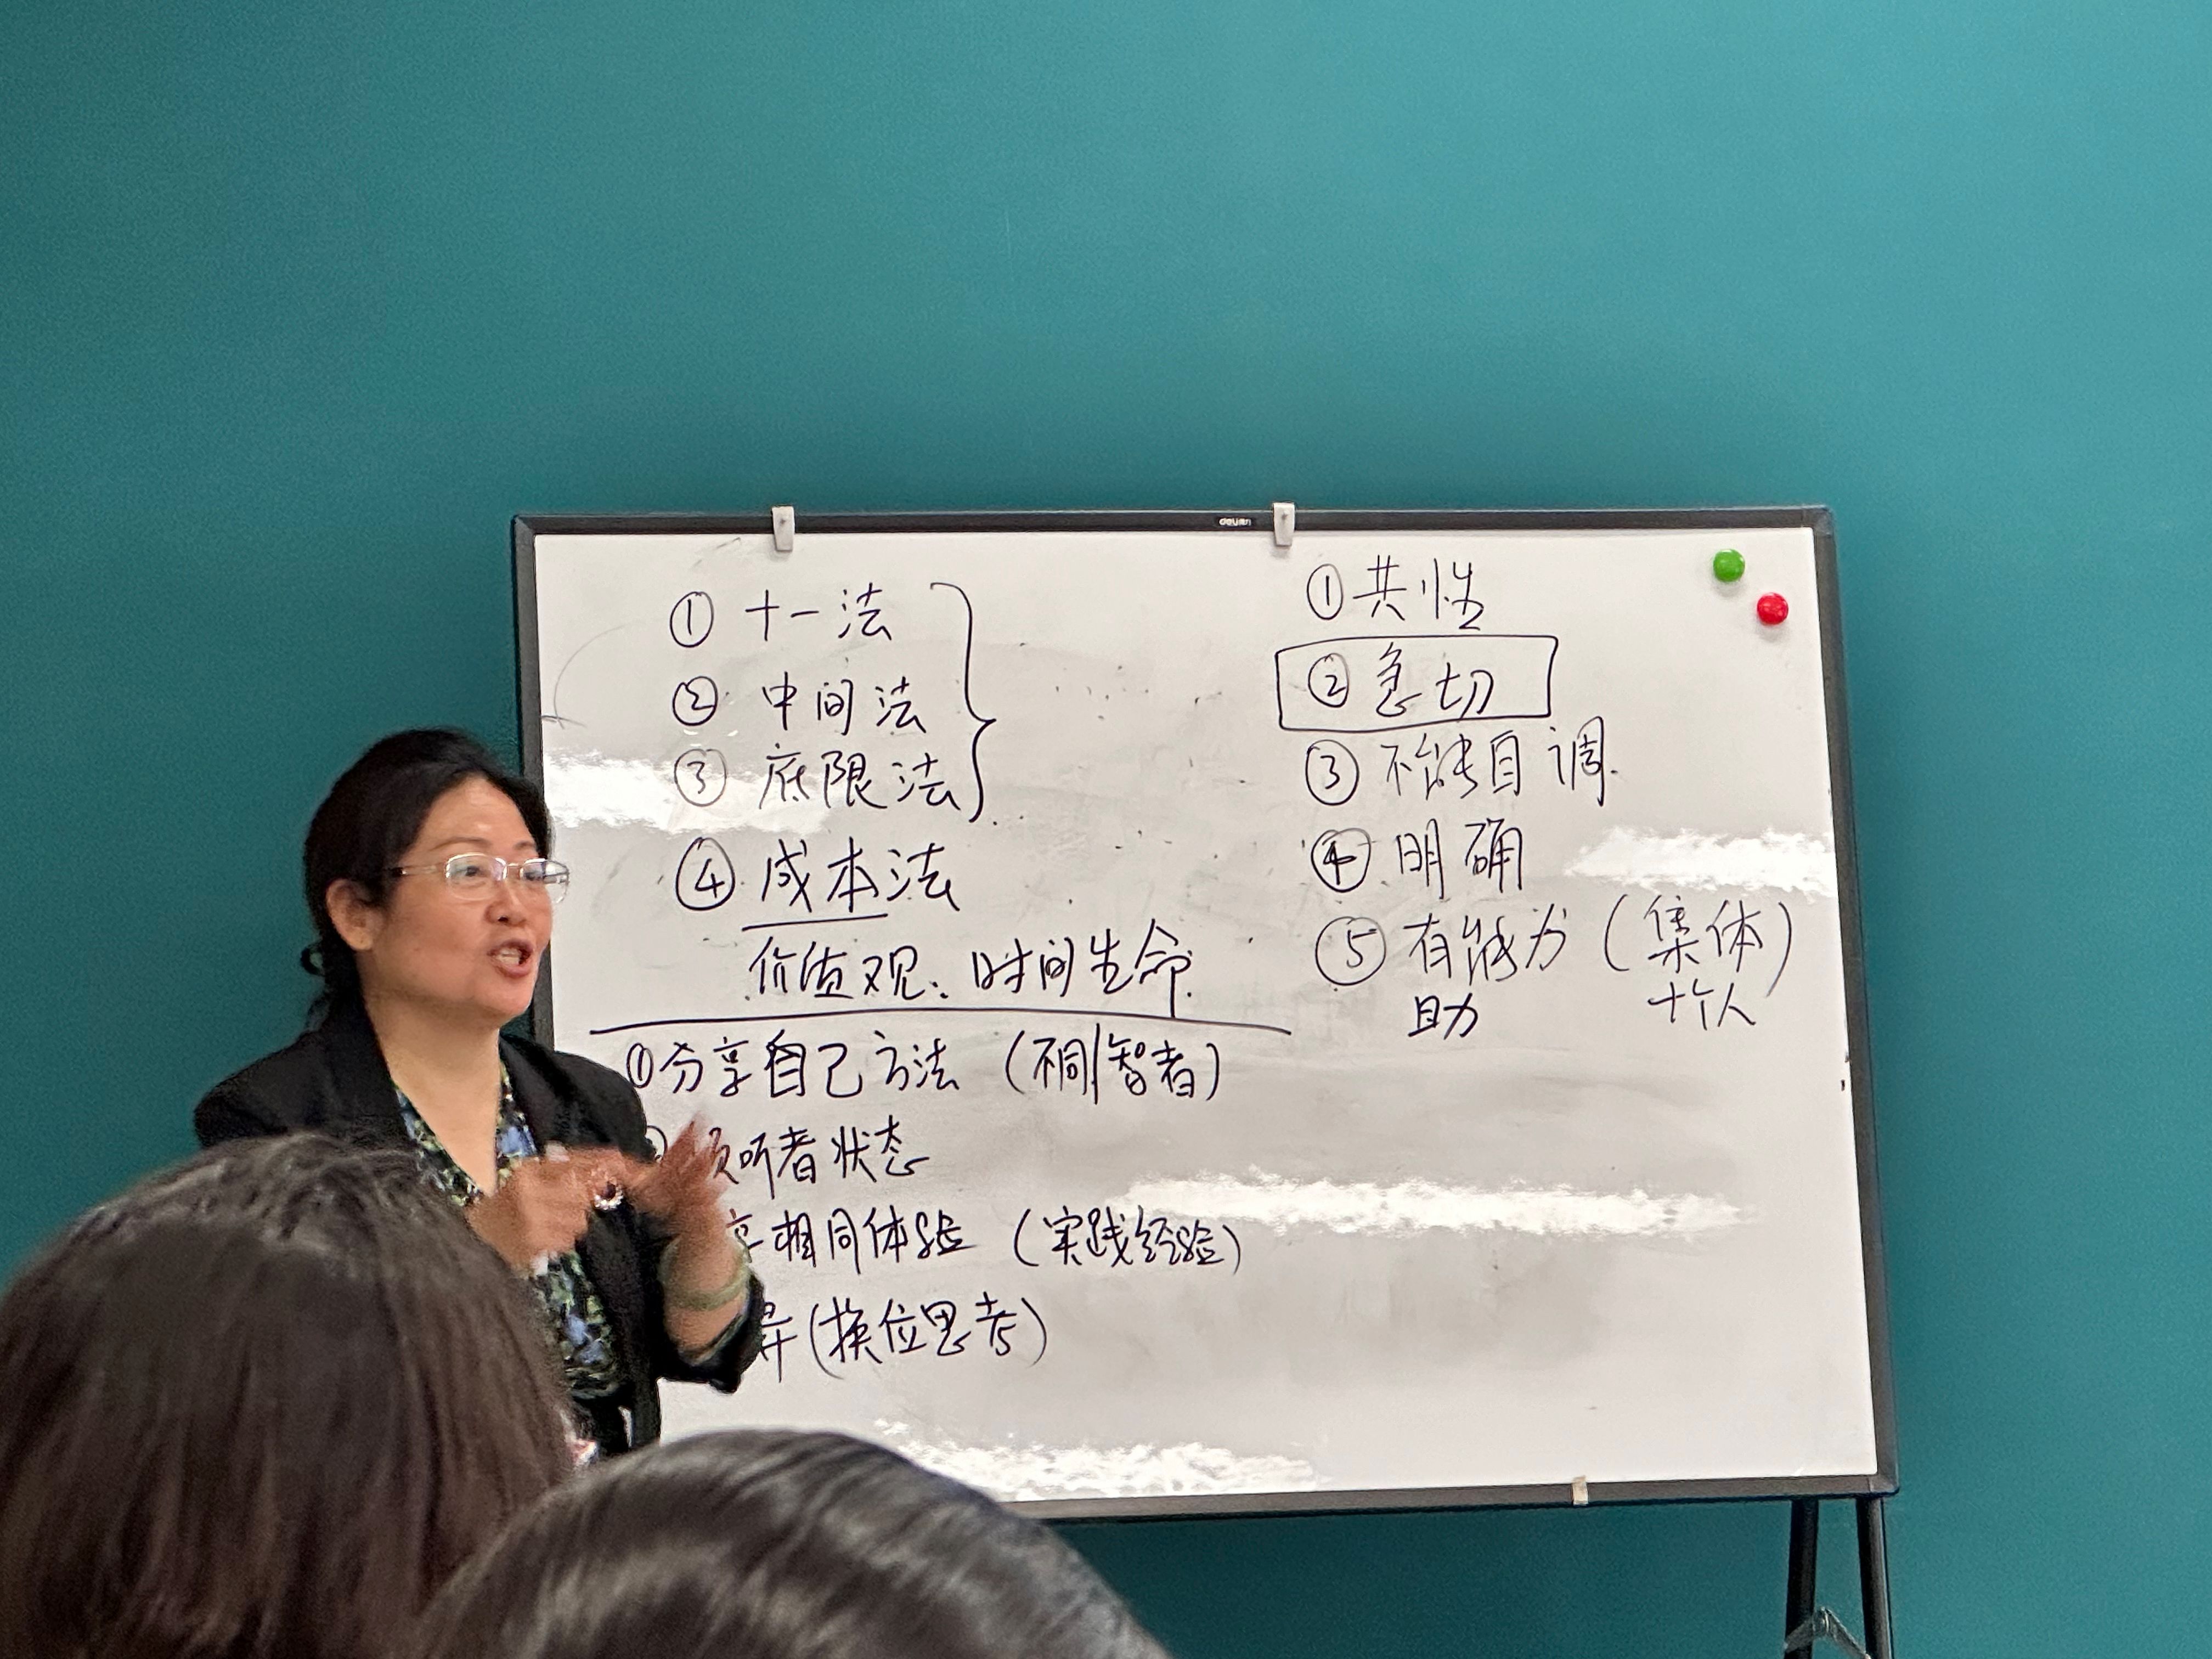 ① 十一法
② 中间法
③ 底限法
④ 成本法
价值观、时间生命
①分享自己方法（不同智者）
听者状态
相同体验（实践经验）
（换位思考）
①共性
②急切
③不能自调
④明确
⑤有能力（集体）
助 十个人